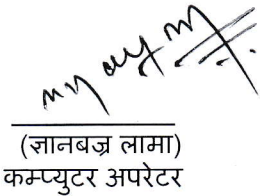 (ज्ञानबज्र लामा)
कम्प्युटर अपरेटर